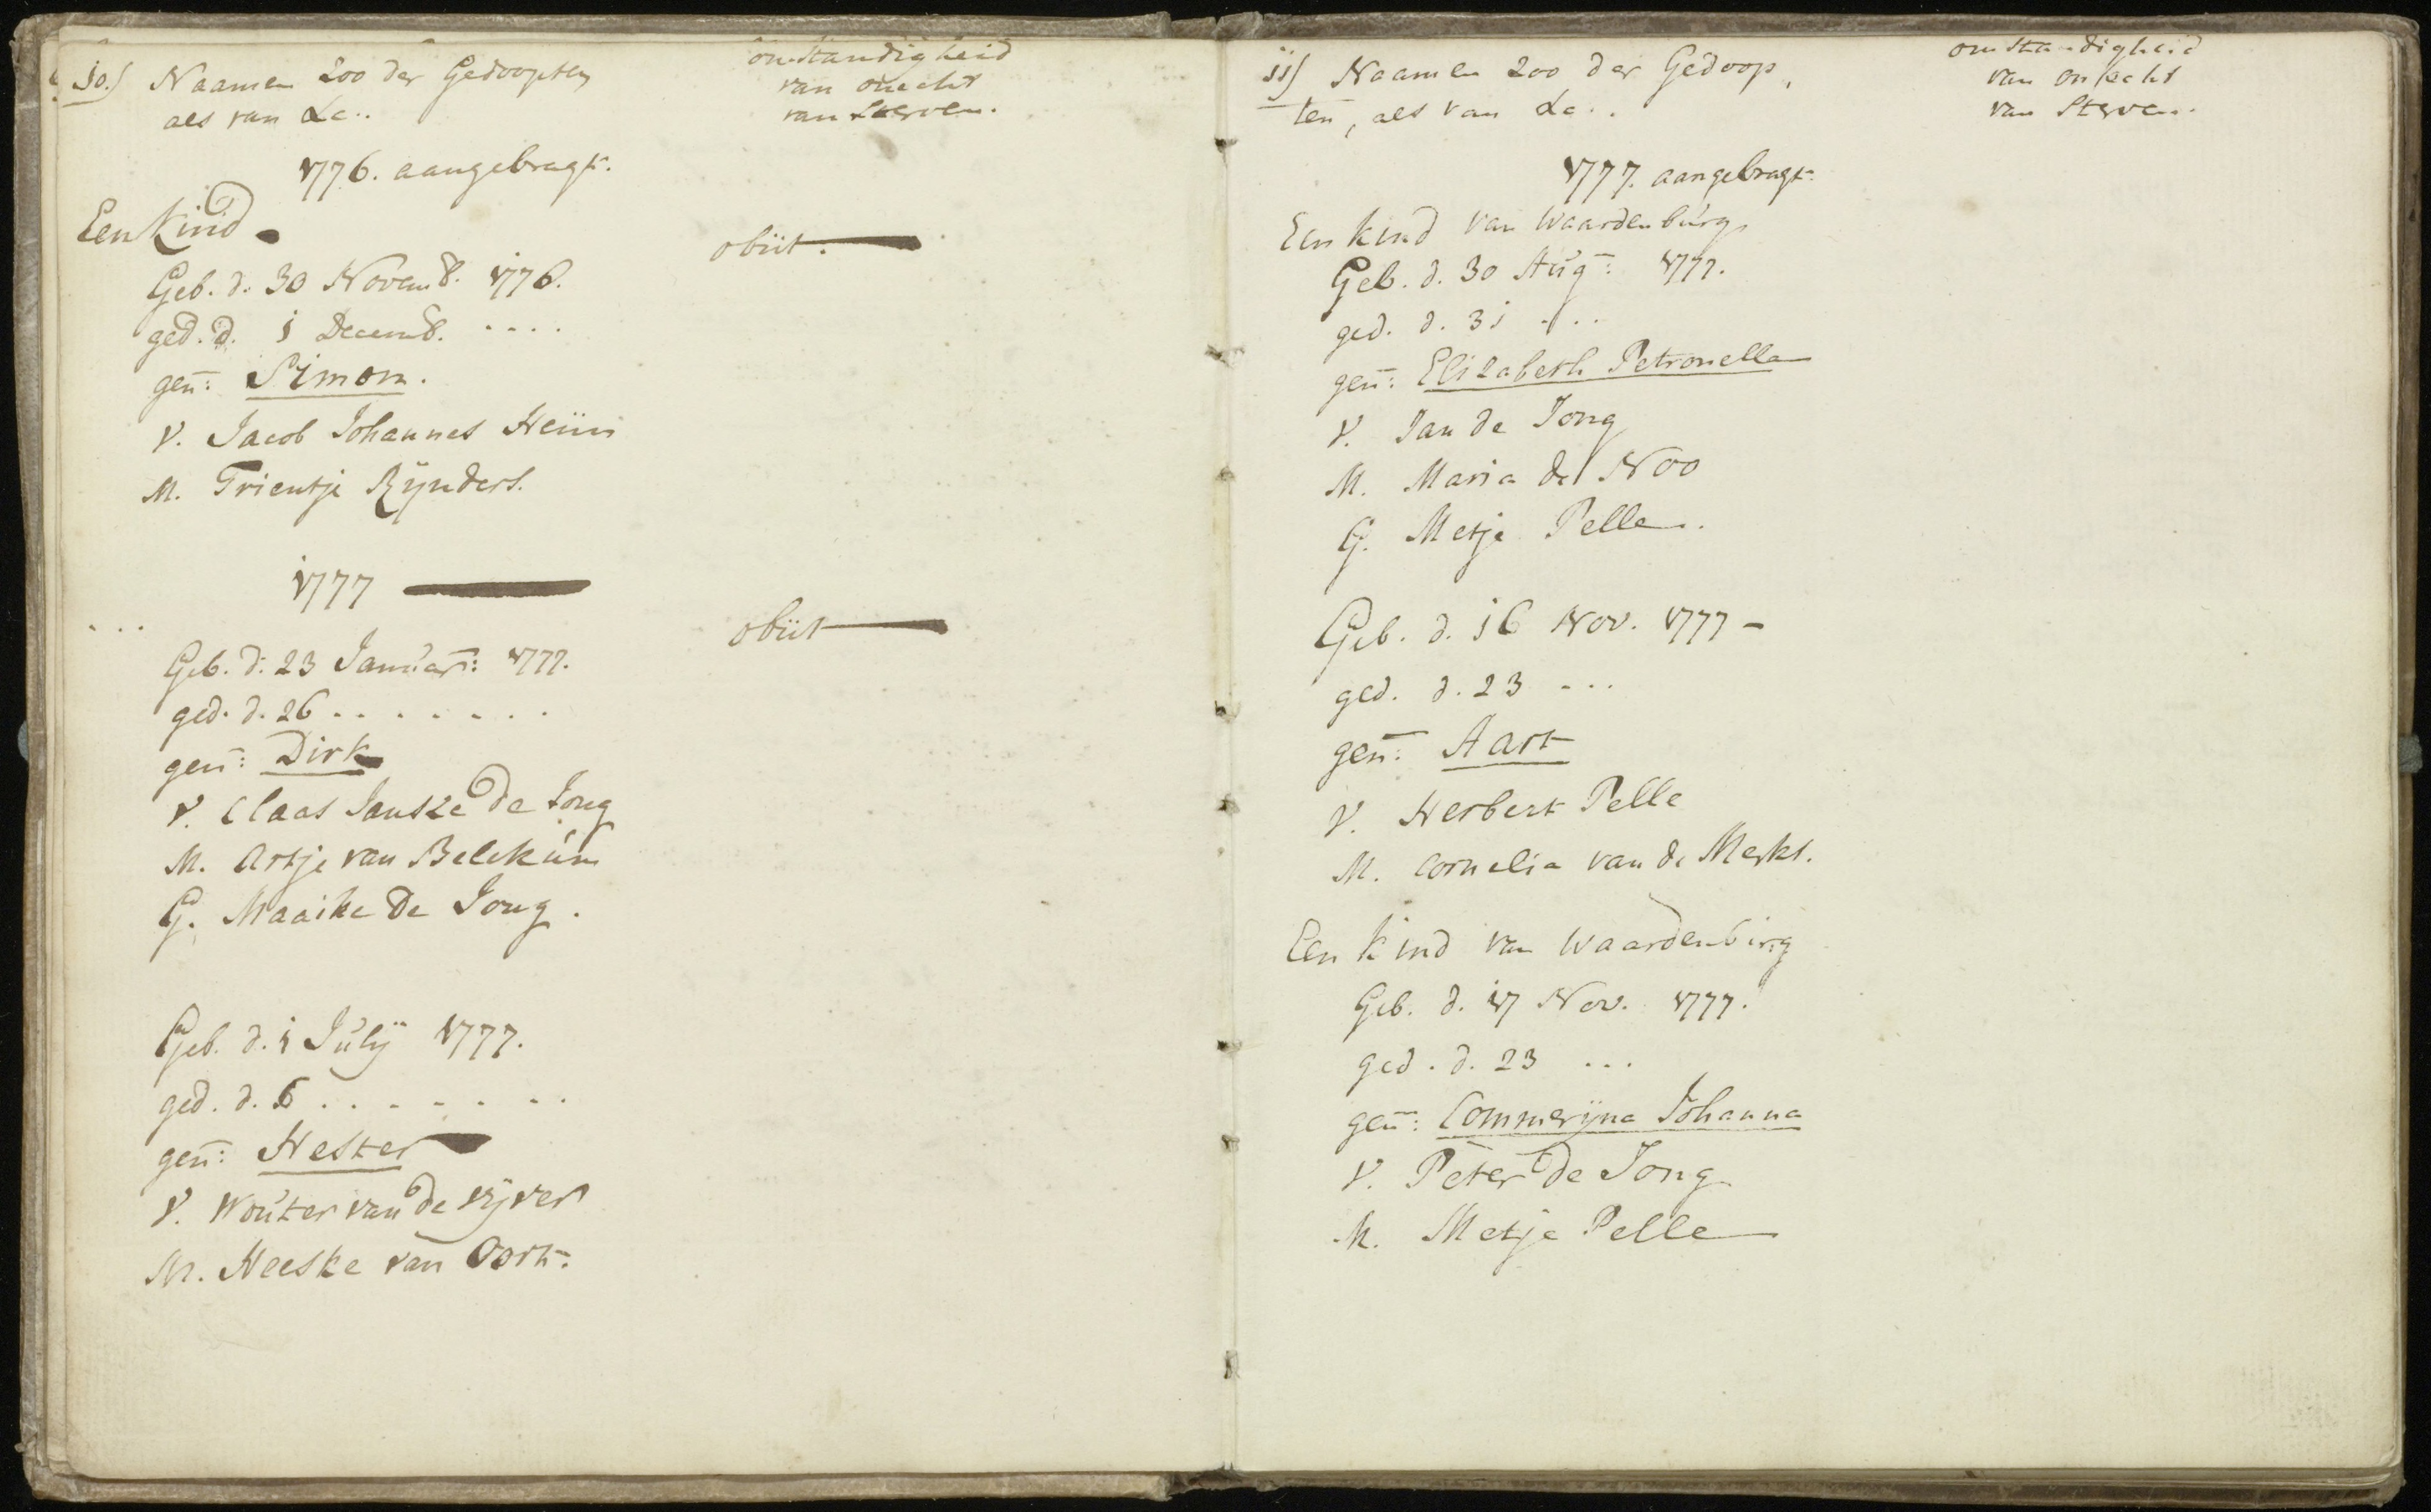 10.) Naamen zoo der Gedoopten
als van &c..
omstandigheid
van onecht
van sterven.
1776. aangebragt.
Een Kind
obiit.
Geb. d. 30 Novemb. 1776.
ged. d. 1 Decemb. ....
gen: Simon.
V. Jacob Johannes
M. Trientje Rÿnders.
1777
...
obiit
Geb. d. 23 Januar: 1777.
ged. d. 26 . . . . . . .
gen: Dirk
V. Claas Janszе de Jong
M. Artje van Belekum
G. Maaike De Jong.
Geb. d. 1 Julÿ 1777.
ged. d. 6 . . . . . . . .
gen: Hester
V. Wouter van de Vijver
M. Neeske van Oort.
11) Naamen zoo der Gedoop,
ten, als van &c..
omstandigheid
van onecht
van Sterven.
1777. aangebragt.
Een kind van Waardenburg
Geb. d. 30 Aug: 1777.
ged. d. 31 ...
gen: Elizabeth Petronella
V. Jan de Jong
M. Maria de Noo
G. Metje Pelle.
Geb. d. 16 Nov. 1777 -
ged. d. 23 ...
gen: Aart
V. Herbert Pelle
M. Cornelia van de Merkt.
Een kind van Waardenburg
Geb. d. 17 Nov. 1777.
ged. d. 23 ...
gen: Commerÿna Johanna
V. Peter De Jong
M. Metje Pelle